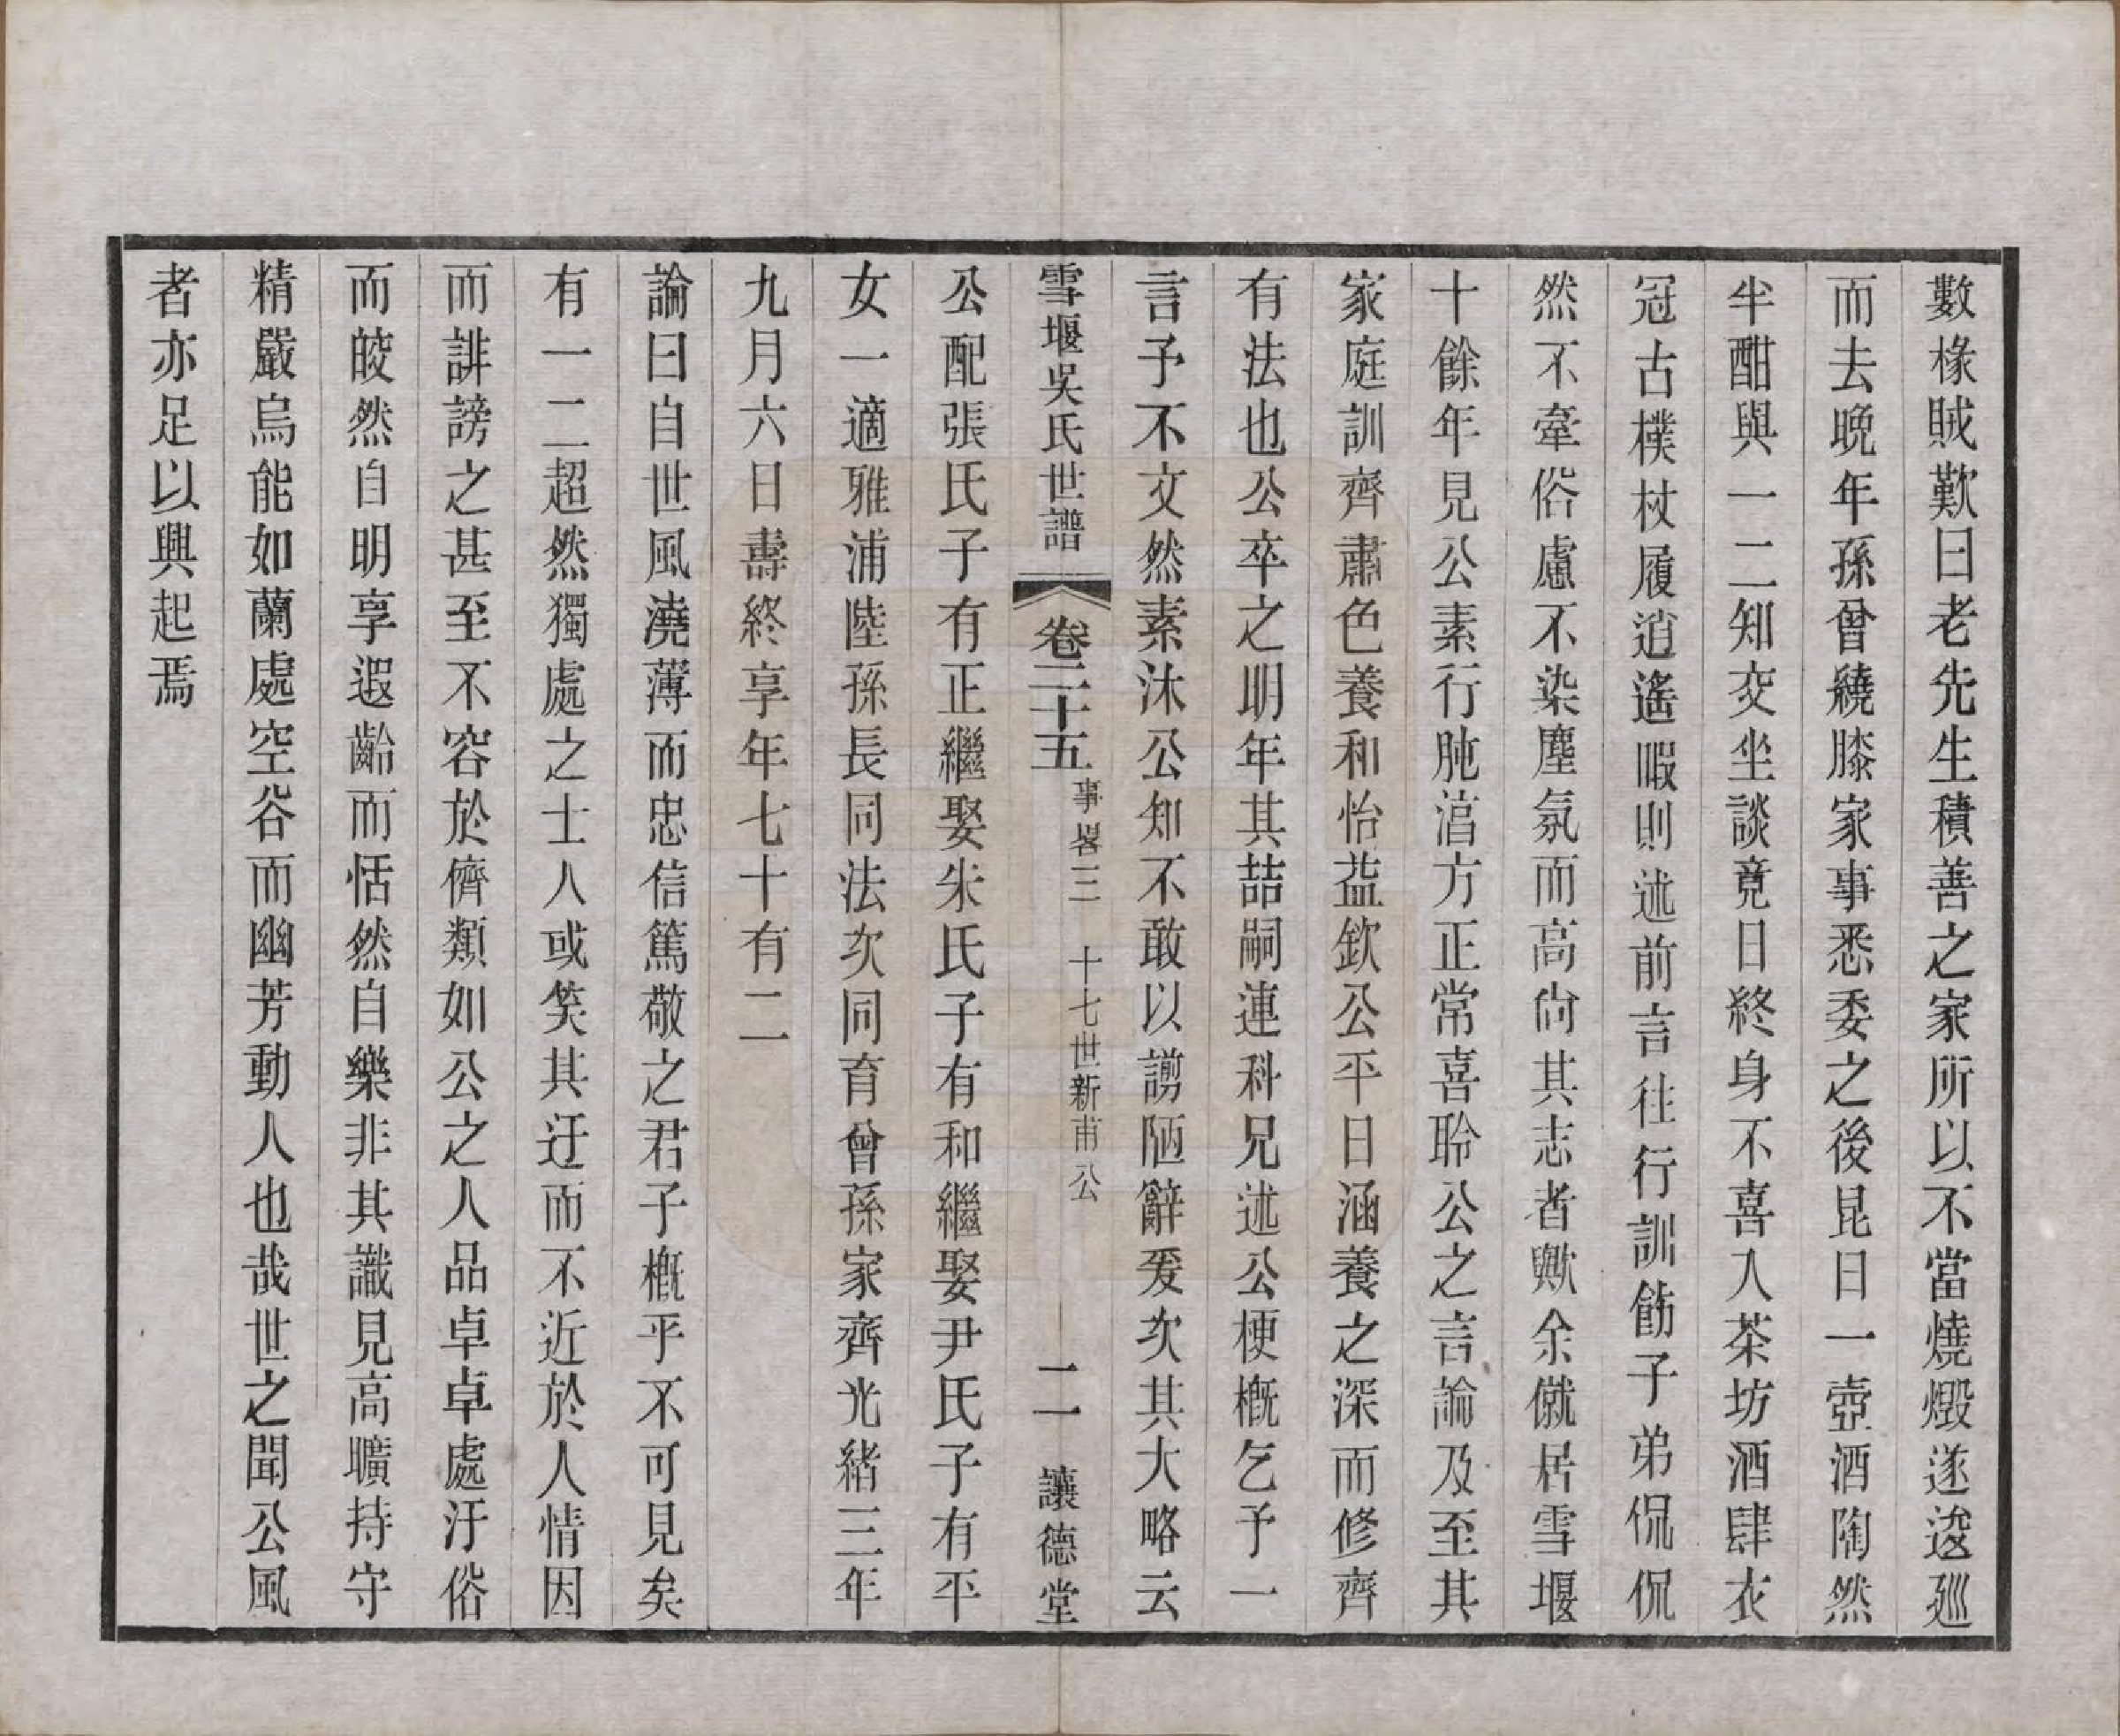 數椽賊歎曰老先生積善之家所以不當燒燬遂逡巡
而去晚年孫曾繞膝家事悉委之後昆日一壺酒陶然
半酣與一二知交坐談竟日終身不喜入茶坊酒肆衣
冠古樸杖履逍遙暇則述前言往行訓飭子弟侃侃
然不牽俗慮不染塵氛而高尙其志者歟余僦居雪堰
十餘年見公素行肫湻方正常喜聆公之言論及至其
家庭訓齊肅色養和怡益欽公平日涵養之深而修齊
有法也公卒之明年其喆嗣連科兄述公梗概乞予一
言予不文然素沐公知不敢以謭陋辭爰次其大略云
雪堰吳氏世譜 卷二十五 事畧三 十七世新甫公 二 讓德堂
公配張氏子有正繼娶朱氏子有和繼娶尹氏子有平
女一適雅浦陸孫長同法次同育曾孫家齊光緒三年
九月六日壽終享年七十有二
論曰自世風澆薄而忠信篤敬之君子概乎不可見矣
有一二超然獨處之士人或笑其迂而不近於人情因
而誹謗之甚至不容於儕類如公之人品卓卓處汙俗
而皎然自明享遐齡而恬然自樂非其識見高曠持守
精嚴烏能如蘭處空谷而幽芳動人也哉世之聞公風
者亦足以興起焉